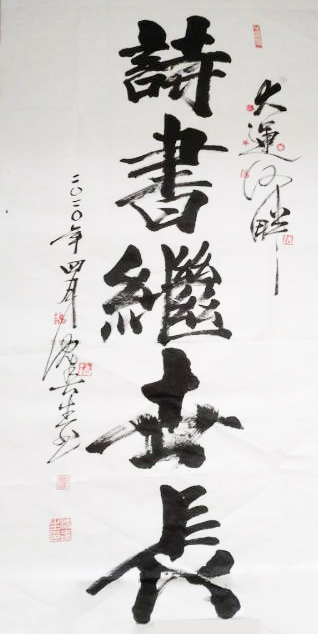 大運河畔
詩書繼世長
二〇二〇年四月